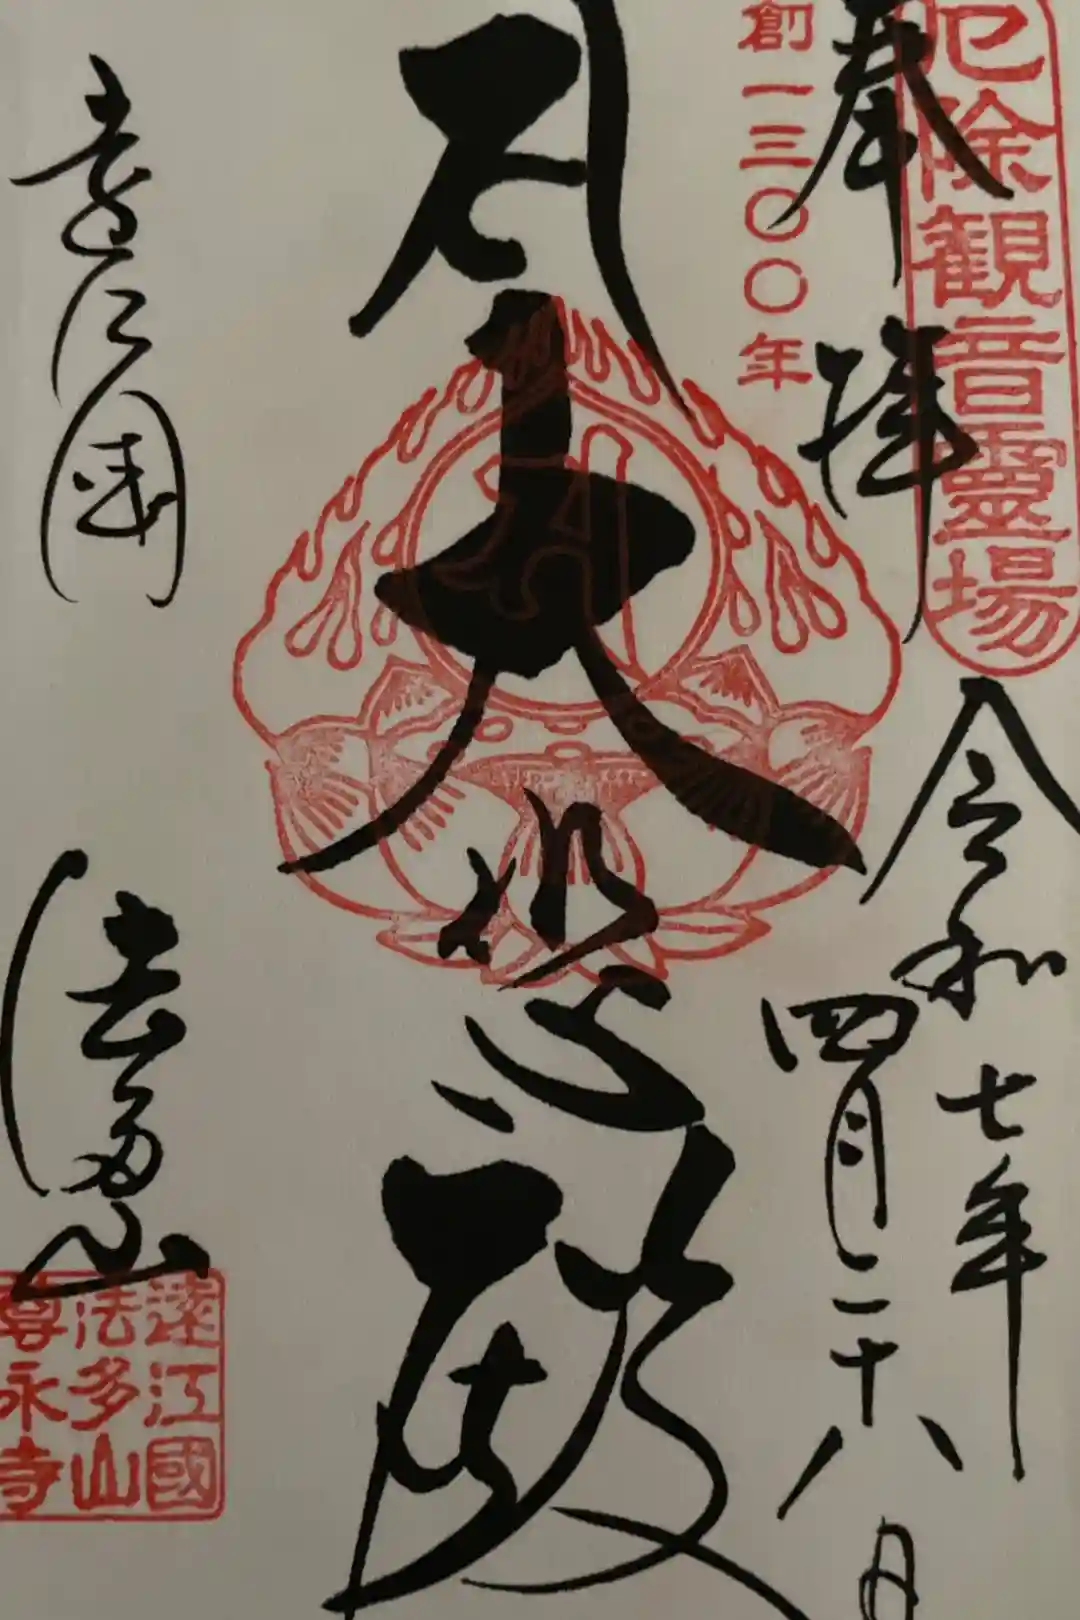 厄除観音霊場
奉拝
令和七年
四月二十八日
創一三〇〇年
大悲殿
遠江国
法多山
遠江國
法多山
尊永寺